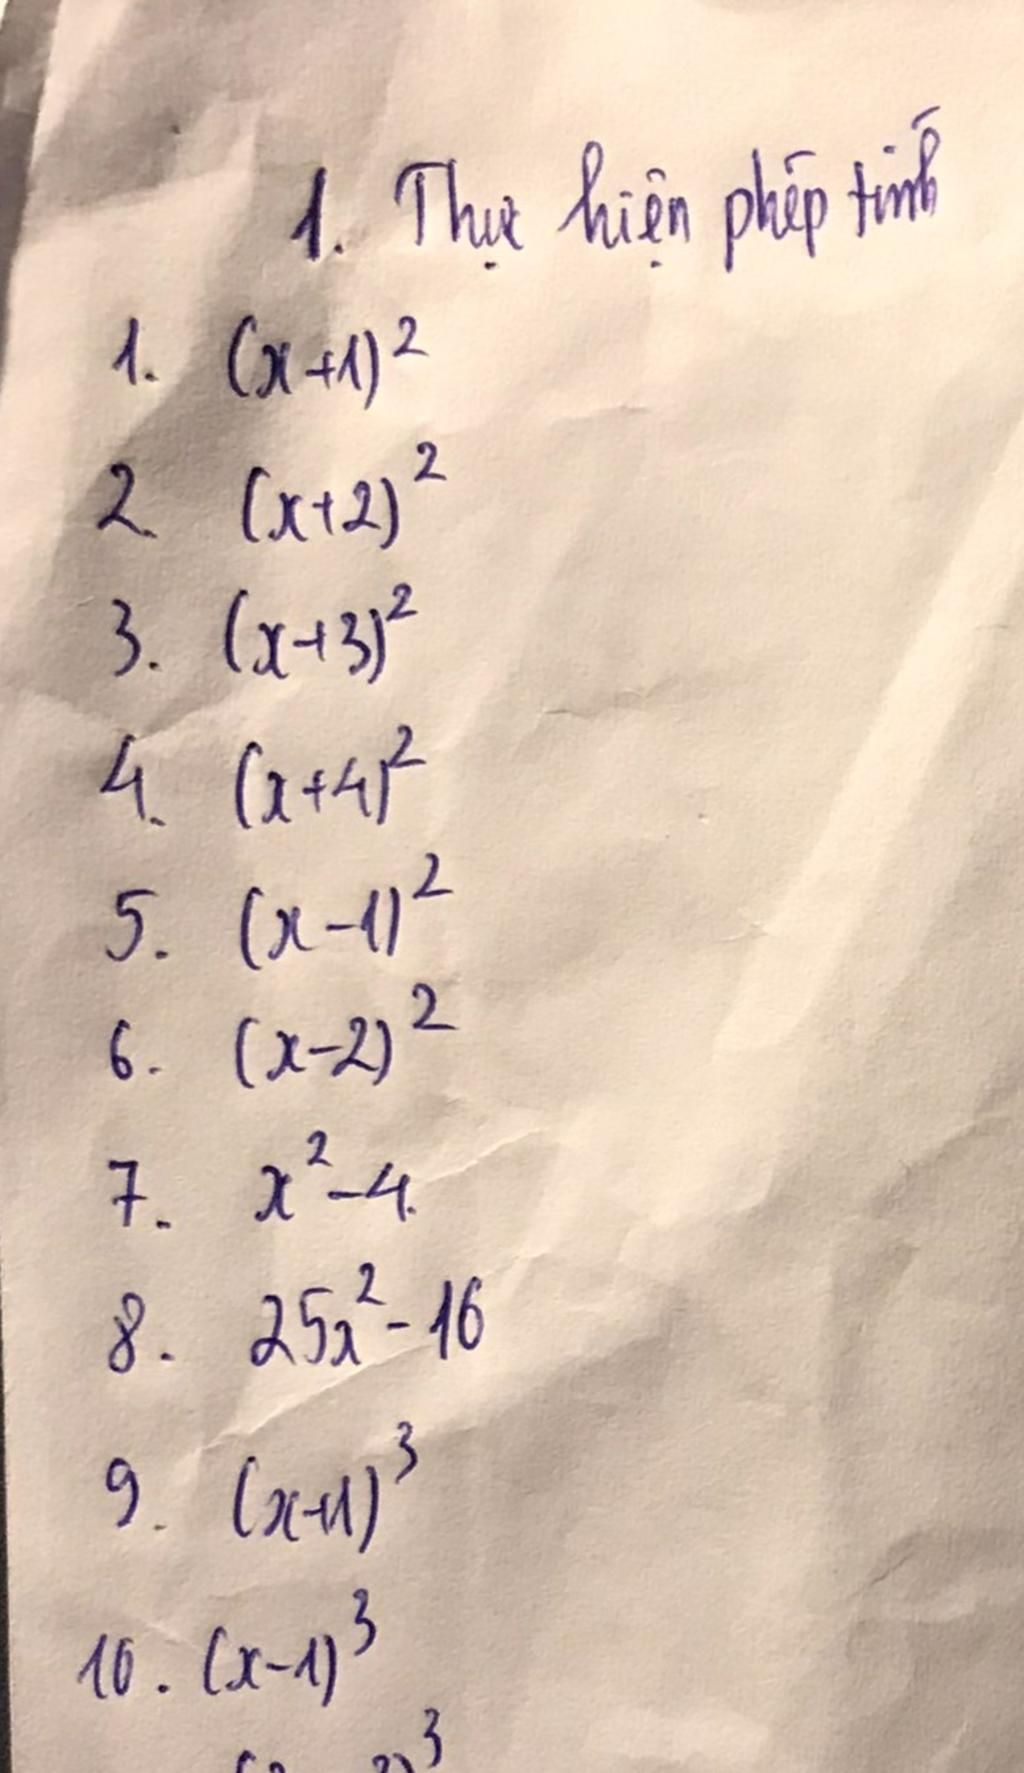 1. Thực hiện phép tính
1. (x+1)²
2. (x+2)²
3. (x+3)²
4. (x+4)²
5. (x-1)²
6. (x-2)²
7. x²-4.
8. 25x²-16
9. (x+1)³
10. (x-1)³